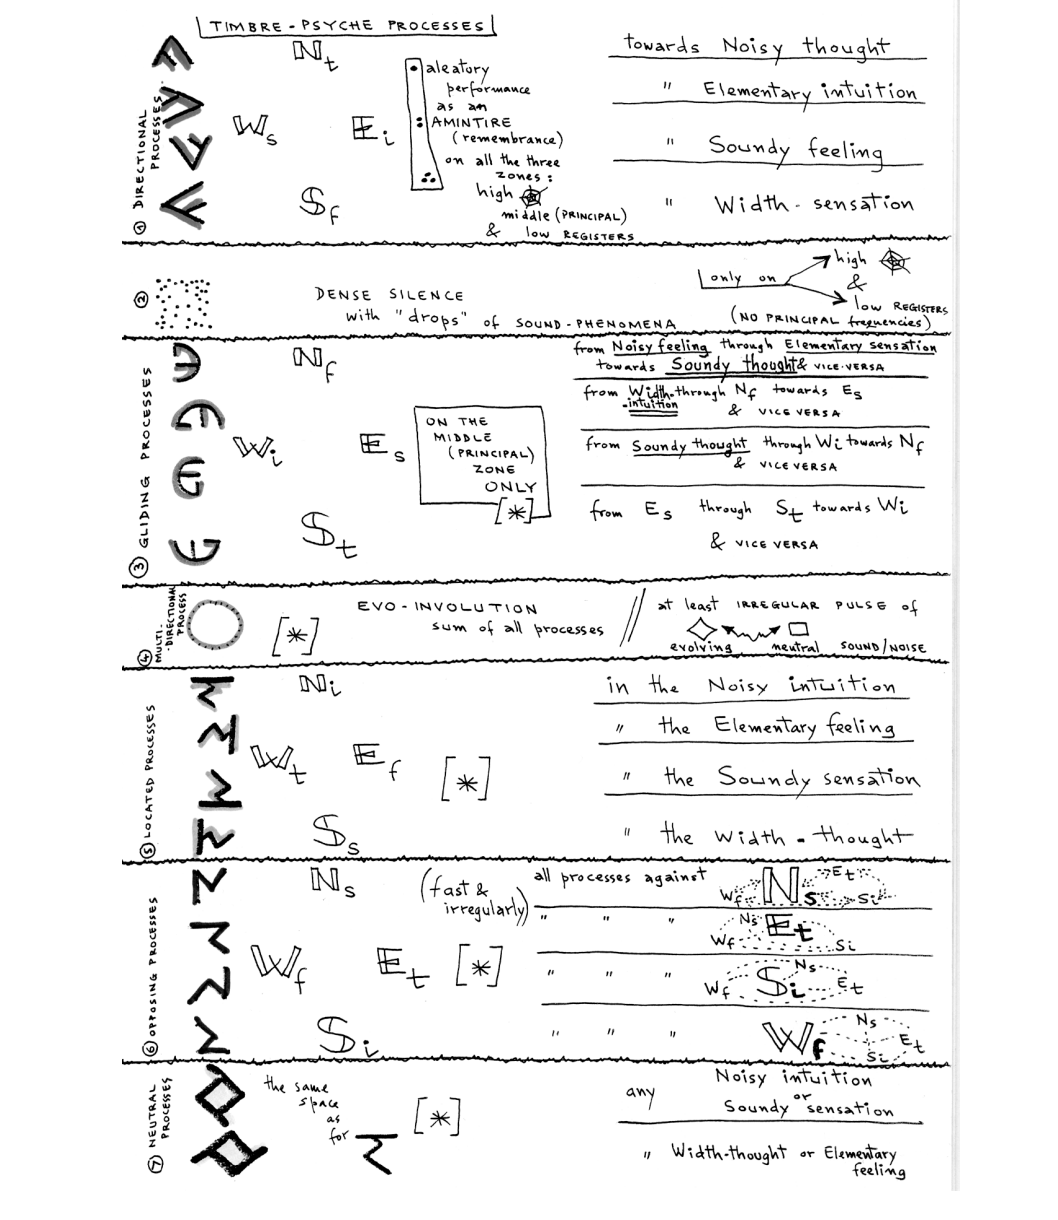 TIMBRE - PSYCHE PROCESSES
① DIRECTIONAL PROCESSES
Nt
Ws
Ei
Sf
aleatory
performance
as an
AMINTIRE
(remembrance)
on all the three
zones:
high
middle (PRINCIPAL)
& low REGISTERS
towards Noisy thought
" Elementary intuition
" Soundy feeling
" Width - sensation
②
DENSE SILENCE
with "drops" of SOUND-PHENOMENA
only on
high
&
low REGISTERS
(NO PRINCIPAL frequencies)
③ GLIDING PROCESSES
Nf
Wi
Es
St
ON THE
MIDDLE
(PRINCIPAL)
ZONE
ONLY
[*]
from Noisy feeling through Elementary sensation
towards Soundy thought & VICE-VERSA
from Width-intuition through Nf towards Es
& VICE VERSA
from Soundy thought through Wi towards Nf
& VICE VERSA
from Es through St towards Wi
& VICE VERSA
④ MULTI-DIRECTIONAL PROCESS
[*]
EVO-INVOLUTION
sum of all processes
// at least IRREGULAR PULSE of
evolving neutral SOUND/NOISE
⑤ LOCATED PROCESSES
Ni
Wt
Ef
[*]
Ss
in the Noisy intuition
" the Elementary feeling
" the Soundy sensation
" the Width - thought
⑥ OPPOSING PROCESSES
Ns
Wf
Et
[*]
Si
(fast &
irregularly)
all processes against
Wf Ns Et Si
" " "
Ns Et Wf Si
" " "
Ns Wf Si Et
" " "
Wf Ns Et Si
⑦ NEUTRAL PROCESSES
the same
space
as
for
[*]
any Noisy intuition
or
Soundy sensation
" Width-thought or Elementary
feeling